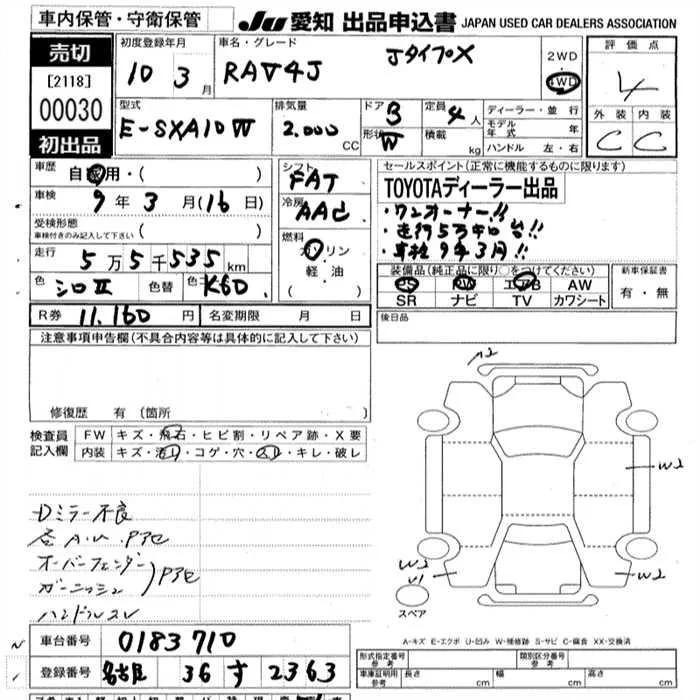 車内保管・守衛保管
JU 愛知 出品申込書 JAPAN USED CAR DEALERS ASSOCIATION
売切
[2118]
00030
初出品
初度登録年月
10 3 月
車名・グレード
RAV4J JタイプX
2WD
4WD
評価点
4
外装 内装
C C
型式
E-SXA10W
排気量
2.000 CC
ドア 3
形状 W
定員 4 人
積載 kg
ディーラー・並行
モデル年式 年
ハンドル 左・右
車歴
自家用・( )
車検
9年3月(16日)
受検形態
車検付きのみ記入して下さい ( )
走行
5万5千535km
色 シロⅡ 色替 K60
R券 11.160 円 名変期限 月 日
シフト
FAT
冷房
AAC
燃料
ガソリン
軽・油
( )
セールスポイント(正常に機能するものに限ります)
TOYOTAディーラー出品
・ワンオーナー!!
・走行5万キロ台!!
・車検9年3月!!
装備品(純正品に限り○をつけてください)
PS PW エアB AW
SR ナビ TV カワシート
新車保証書
有・無
後日品
注意事項申告欄(不具合内容等は具体的に記入して下さい)
修復歴 有(箇所 )
検査員記入欄
FW キズ・飛石・ヒビ割・リペア跡・X要
内装 キズ・汚れ・コゲ・穴・スレ・キレ・破レ
Dミラー不良
オーバーフェンダー
ガーニッシュ
ハンドルスレ
A2
W2
W2
W3
U1
スペア
A-キズ E-エクボ U-凹み W-補修跡 S-サビ C-腐食 XX-交換済
車台番号 0183710
登録番号 名古屋 36 す 2363
形式指定番号 参考
類別区分番号 参考
車庫証明用 参考
長さ cm 幅 cm 高さ cm